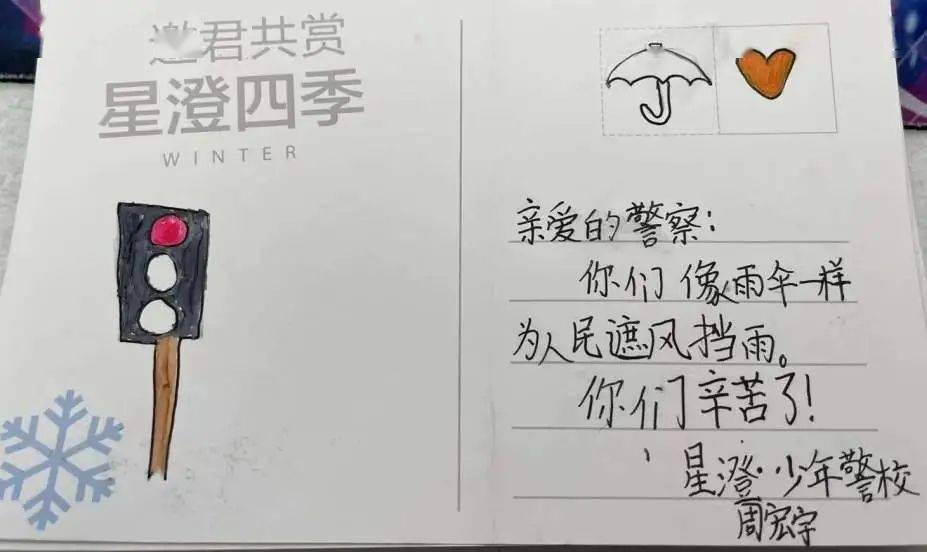 邀君共赏
星澄四季
WINTER
亲爱的警察：
你们像雨伞一样
为人民遮风挡雨。
你们辛苦了！
星澄·少年警校
周宏宇